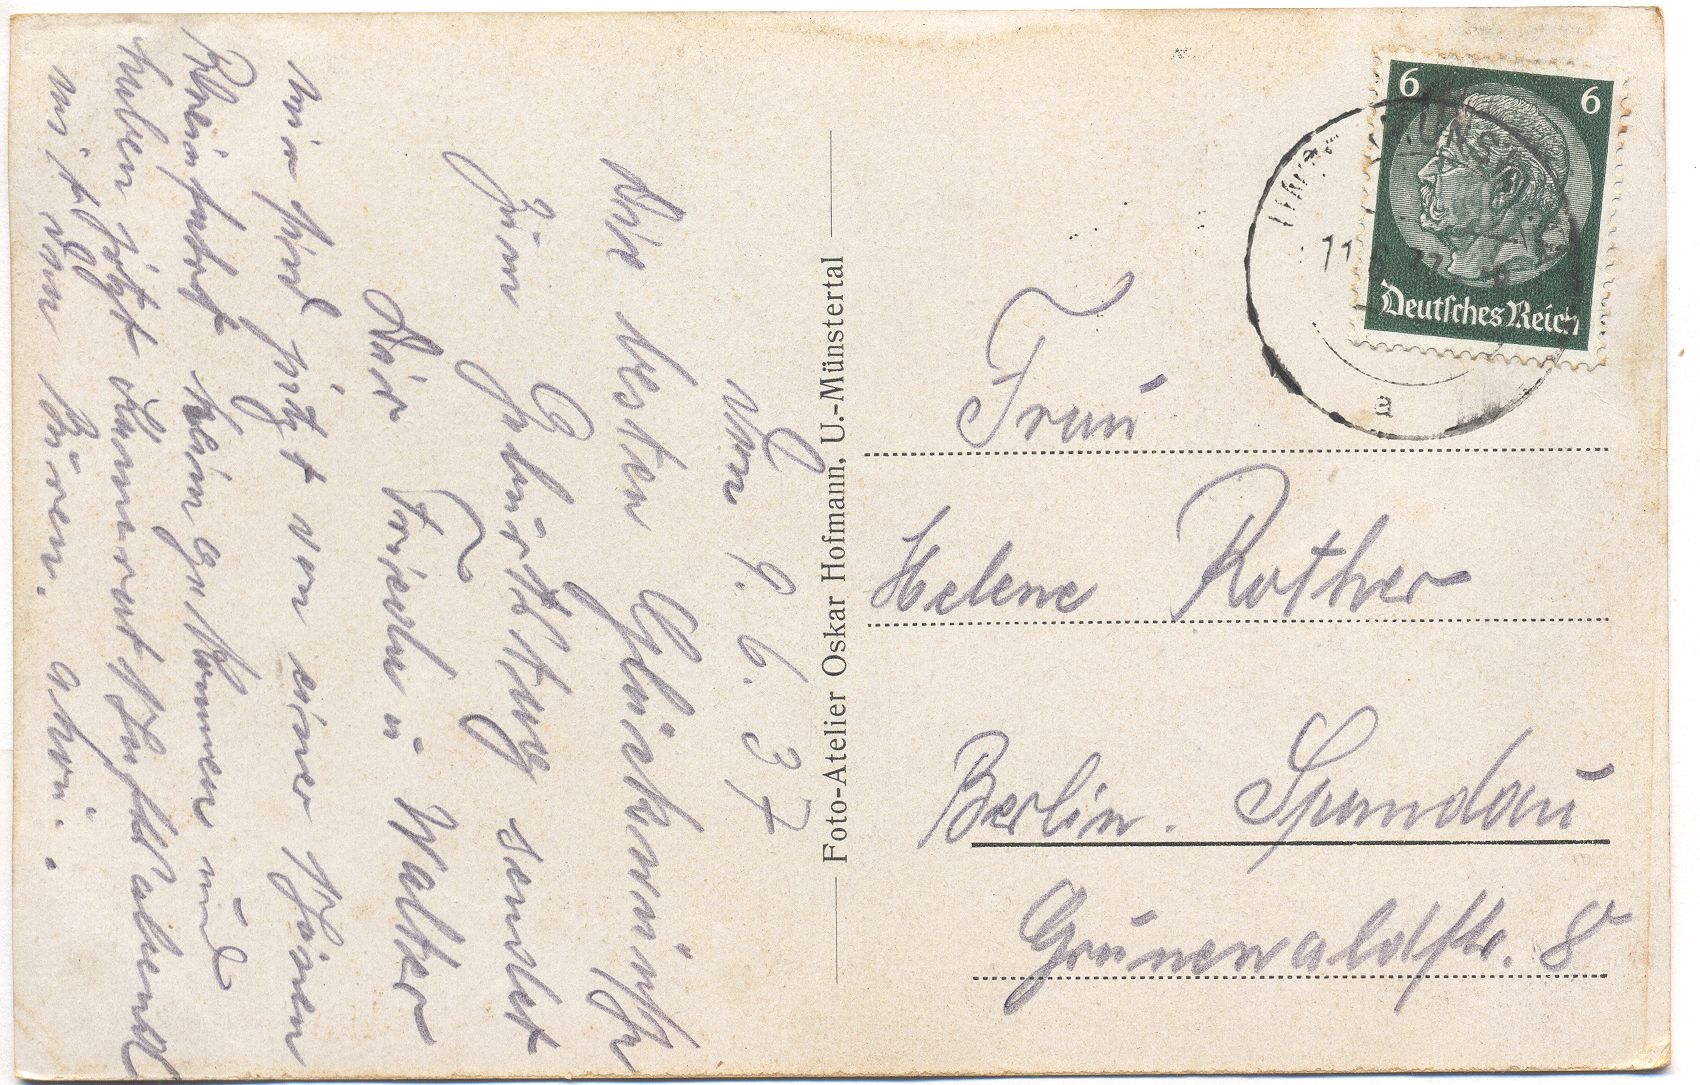 Von 9. 6. 37
Die besten Glückwünsche
zum Geburtstag sendet
Dir Frieda u Walter
wir sind jetzt von einer schönen
Rheinfahrt heim gekommen und
haben jetzt
mit den Bären.
Foto-Atelier Oskar Hofmann, U.-Münstertal
6 6
Deutsches Reich
Frau
Helene Rother
Berlin. Spandau
Grünewaldstr. 8